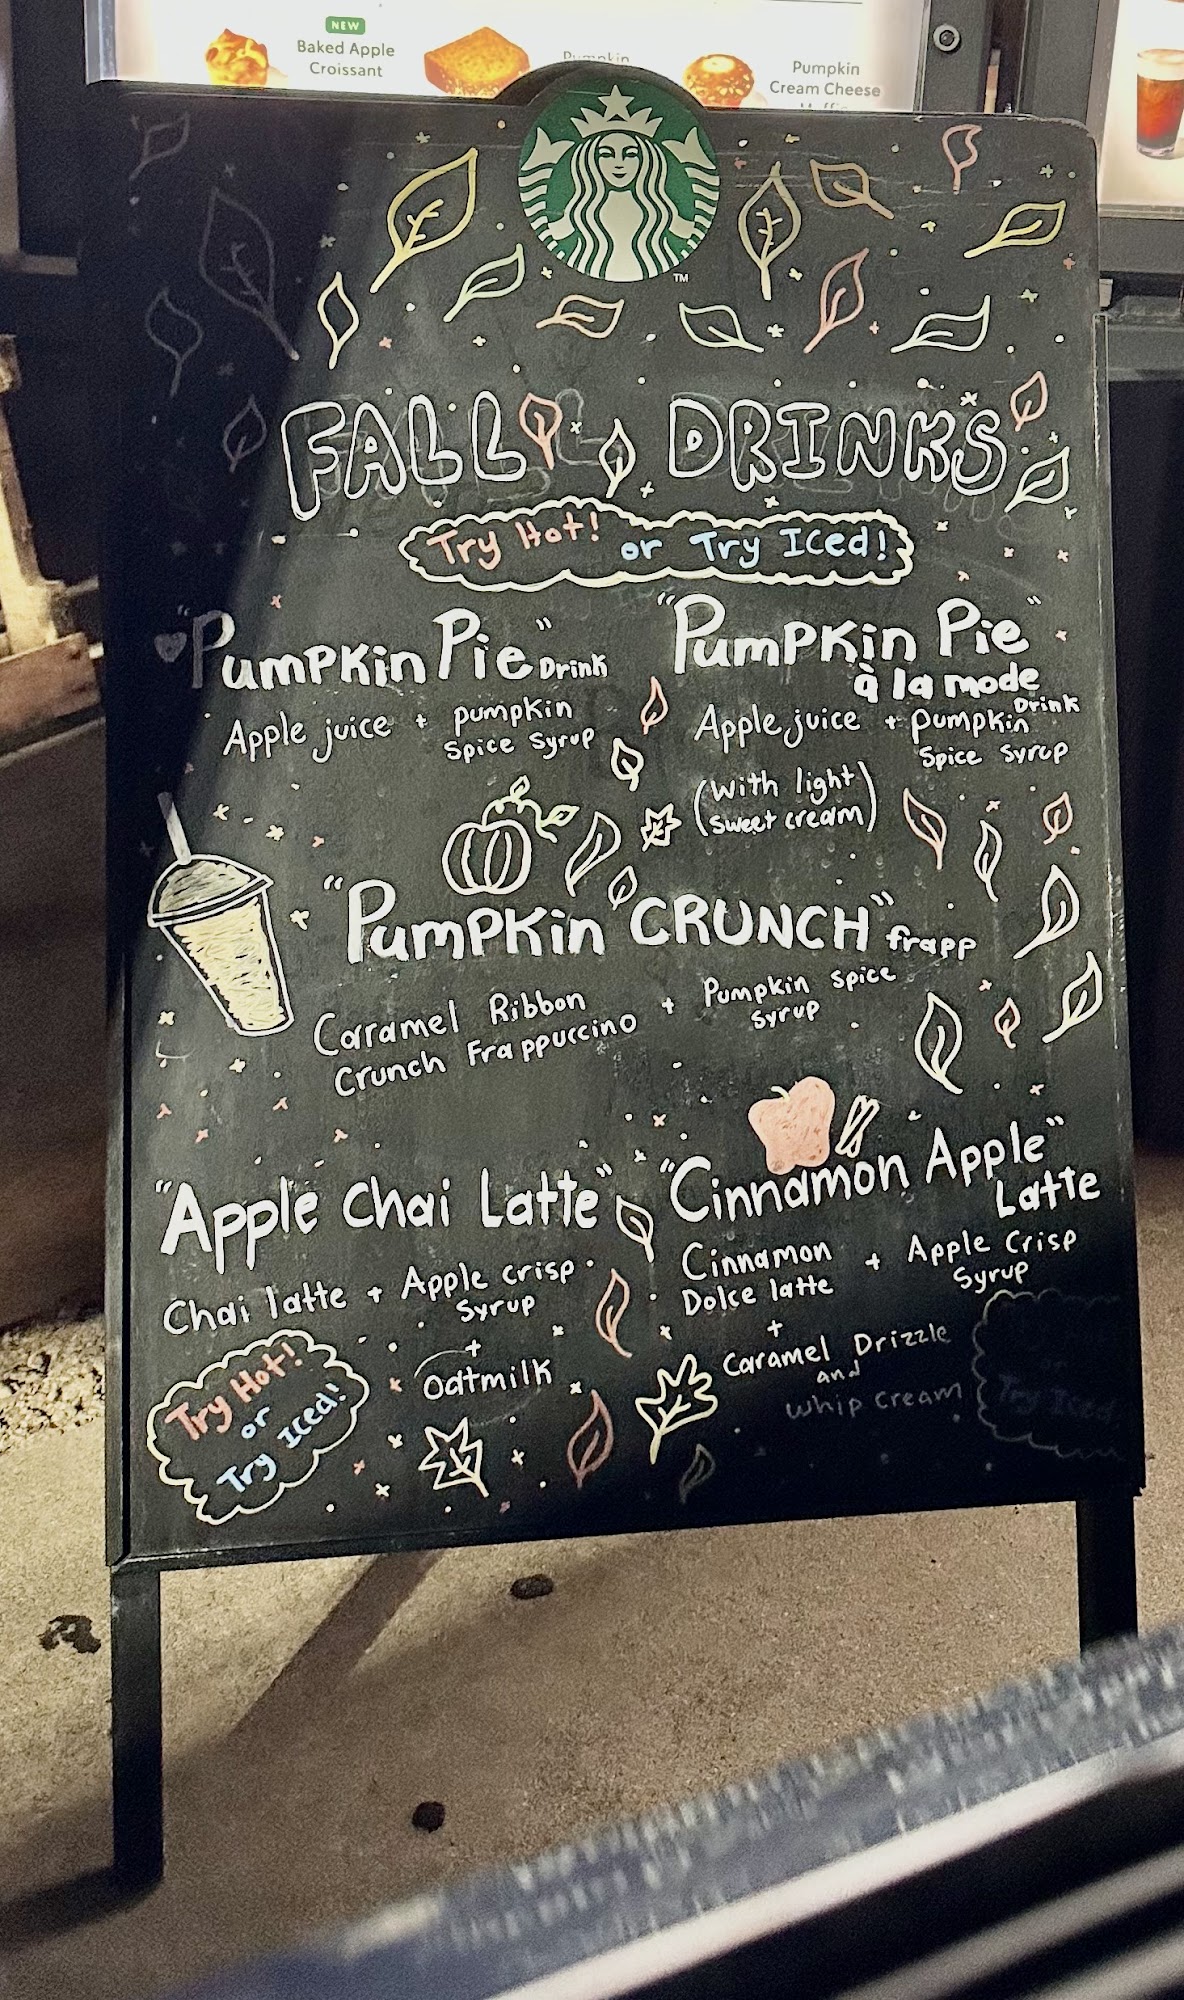 NEW
Baked Apple
Croissant
Pumpkin
Pumpkin
Cream Cheese
Muffin
TM
FALL DRINKS
Try Hot! or Try Iced!
"Pumpkin Pie" Drink
Apple juice + pumpkin
spice syrup
"Pumpkin Pie"
à la mode
Drink
Apple juice + pumpkin
spice syrup
(with light
sweet cream)
"Pumpkin CRUNCH" frapp
Caramel Ribbon
Crunch Frappuccino
+ Pumpkin spice
syrup
"Apple Chai Latte"
Chai latte + Apple crisp
syrup
+
oatmilk
Try Hot!
or
Try Iced!
"Cinnamon Apple"
Latte
Cinnamon
Dolce latte
+ Apple Crisp
Syrup
+
Caramel Drizzle
and
whip cream
or
Try Iced!